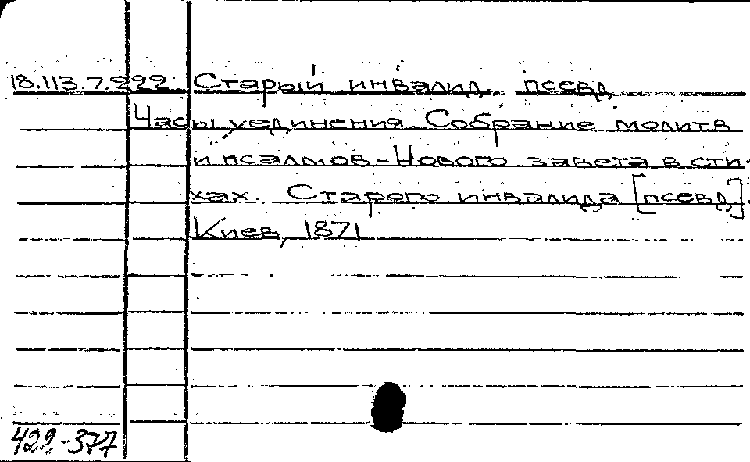 18.113.7.222. Старый инвалид, псевд
Часы уединения Собрание молитв
и псалмов - Нового завета в сти-
хах. Старого инвалида [псевд].
Киев, 1871
422-377